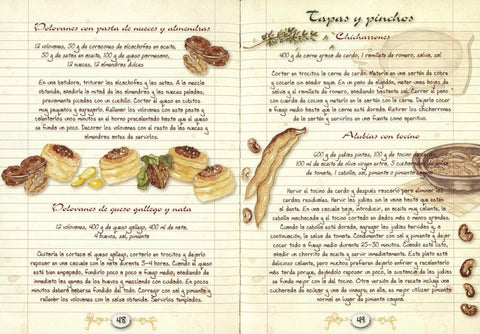 Volovanes con pasta de nueces y almendras
12 volovanes, 30 g de corazones de alcachofas en aceite,
30 g de setas en aceite, 100 g de queso parmesano,
12 nueces, 12 almendras dulces
En una batidora, triturar las alcachofas y las setas. A la mezcla
obtenida, añadirle la mitad de las almendras y las nueces peladas,
previamente picadas con un cuchillo. Cortar el queso en cubitos
muy pequeños y agregarlo. Rellenar los volovanes con esta pasta y
calentarlos unos minutos en el horno precalentado hasta que el queso
se funda un poco. Decorar los volovanes con el resto de las nueces y
almendras antes de servirlos.
Volovanes de queso gallego y nata
12 volovanes, 400 g de queso gallego, 400 ml de nata,
4 huevos, sal, pimienta
Quitarle la corteza al queso gallego, cortarlo en trocitos y dejarlo
reposar en una cazuela con la nata durante 3-4 horas. Cuando el queso
esté bien empapado, fundirlo poco a poco a fuego medio, añadiendo de
inmediato las yemas de los huevos y mezclando con cuidado. En pocos
minutos deberá haberse fundido del todo. Corregir con sal y pimienta y
rellenar los volovanes con la salsa obtenida. Servirlos templados.
48
Tapas y pinchos
Chicharrones
400 g de carne grasa de cerdo, 1 ramillete de romero, salvia, sal
Cortar en trocitos la carne de cerdo. Meterla en una sartén de cobre
y cocerla sin añadir agua. En un paño de algodón, meter unas hojas
de salvia y el ramillete de romero, anudando bastante sal. Cerrar el paño
con cuerda de cocina y meterlo en la sartén con la carne. Dejarlo cocer a
fuego medio hasta que la carne esté dorada. Retirar los chicharrones
de la sartén y servirlos en una fuente como aperitivo.
Alubias con tocino
600 g de judías pintas, 100 g de tocino de cerdo,
100 ml de aceite de oliva virgen extra, 5 cucharadas de salsa
de tomate, 1 cebolla, sal, pimiento o pimienta cayena
Hervir el tocino de cerdo y después rascarlo para eliminar las
cerdas residuales. Hervir las judías sin la vaina hasta que estén
al dente. En una cazuela baja, introducir, en aceite muy caliente, la
cebolla machacada y el tocino cortado en dados más o menos grandes.
Cuando la cebolla esté dorada, agregar las judías hervidas y, a
continuación, la salsa de tomate. Condimentar con sal y pimienta y dejar
cocer todo a fuego medio durante 25-30 minutos. Cuando esté listo,
añadir un chorrito de aceite y servir inmediatamente. Este plato está
delicioso caliente, pero muchos prefieren dejarlo enfriar y recalentarlo
más tarde porque, dejándolo reposar un poco, la sustancia de las judías
se funde mejor con la del tocino. Otra versión de la receta incluye una
cucharada de azúcar y una de vinagre; en ella, es mejor utilizar pimienta
normal en lugar de pimienta cayena.
49